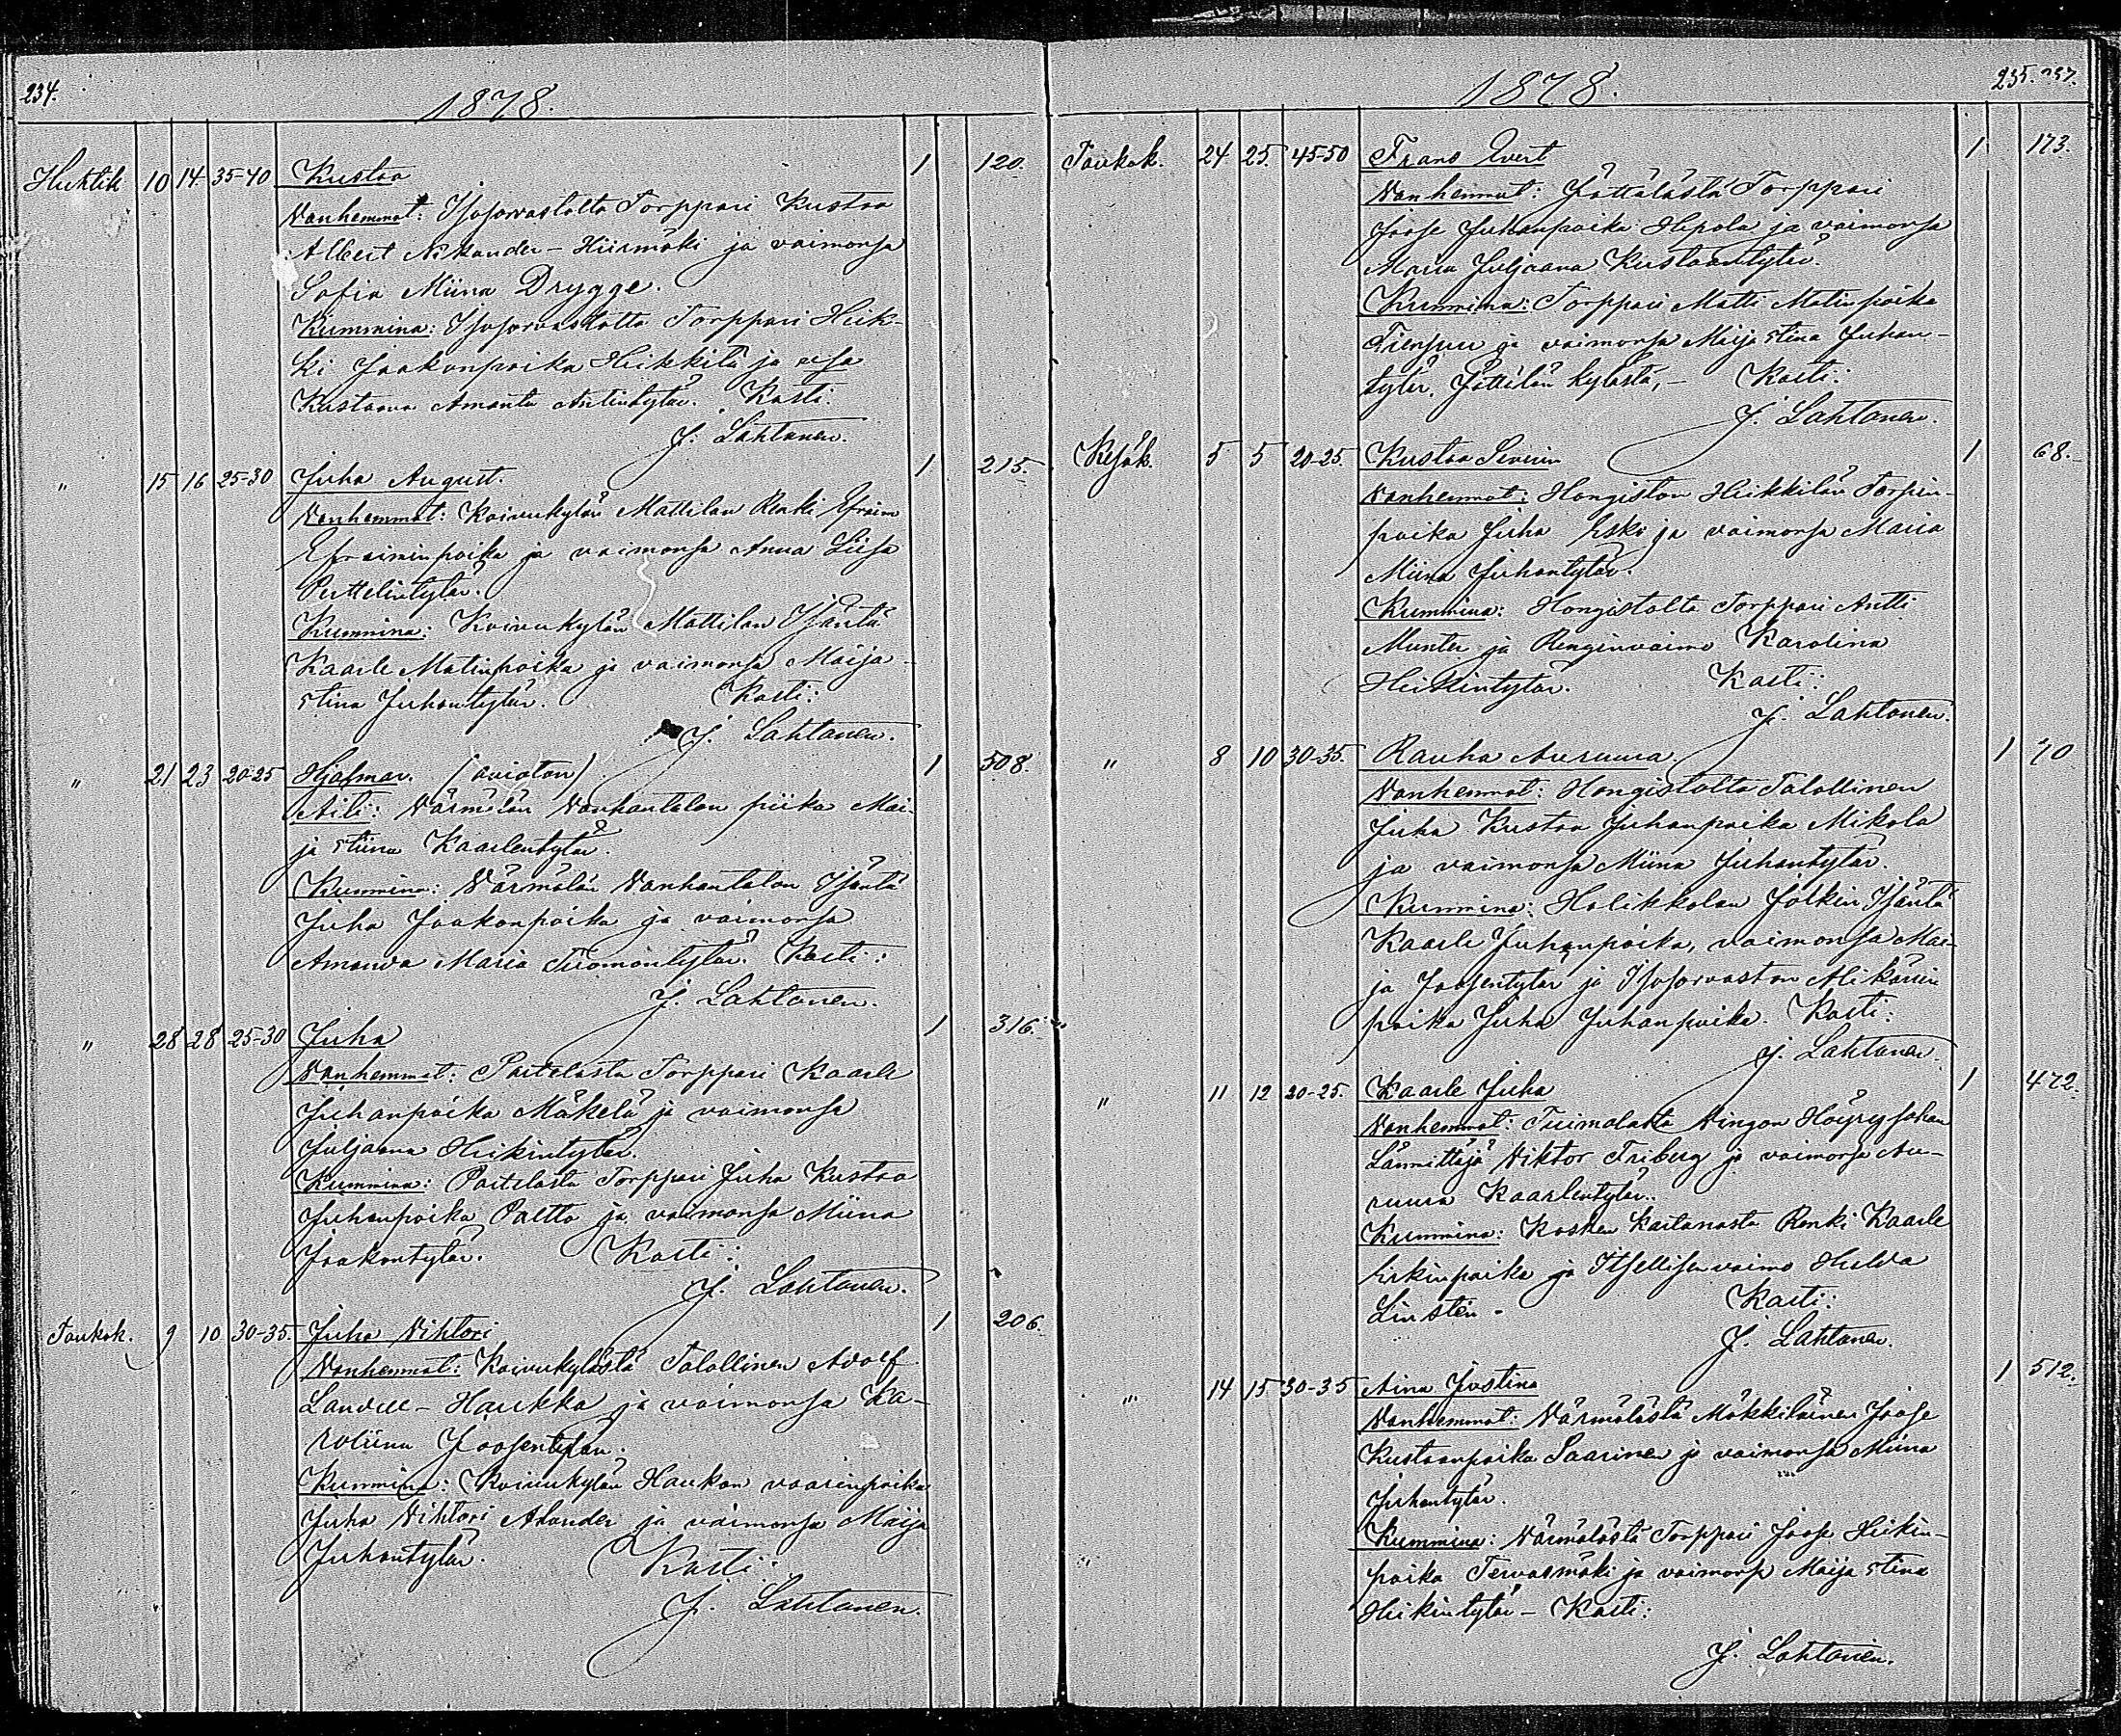 234.
1878.
Huhtik 10 14. 35-40 Kustaa 1 120.
Vanhemmat: Isosorvastolta Torppari Kustaa
Albert Nikander - Hiirmäki ja vaimonsa
Sofia Miina Drygge.
Kummina: Isosorvastolta Torppari Heik-
ki Jaakonpoika Heikkilä ja vsa
Kustaava Amanta Antintytär. Kasti:
J. Lahtonen.
" 15 16 25-30 Juha August. 1 215.
Vanhemmat: Koivukylän Mattilan Renki Efraim
Efraiminpoika ja vaimonsa Anna Liisa
Perttelintytär.
Kummina: Koivukylän Mattilan Isäntä
Kaarle Matinpoika ja vaimonsa Maija
stina Juhontytär. Kasti:
J. Lahtonen.
" 21 23 20-25 Hjalmar. (avioton) 1 508.
Äiti: Värmälän Vanhantalon piika Mai-
ja stiina Kaarlentytär.
Kummina: Värmälän Vanhantalon Isäntä
Juha Jaakonpoika ja vaimonsa
Amanda Maria Tuomontytär. Kasti:
J. Lahtonen.
" 28 28 25-30 Juha 1 316.
Vanhemmat: Partelasta Torppari Kaarle
Juhanpoika Mäkelä ja vaimonsa
Juljaana Heikintytär.
Kummina: Partelasta Torppari Juha Kustaa
Juhanpoika Paltta ja vaimonsa Miina
Jaakontytär. Kasti:
J. Lahtonen.
Toukok. 9 10 30-35. Juha Vihtori 1 206.
Vanhemmat: Koivukylästä Talollinen Adolf
Landell - Haukka ja vaimonsa Ka-
roliina Joosentytär.
Kummina: Koivukylän Haukan vaarinpoika
Juha Vihtori Ahander ja vaimonsa Maija
Juhontytär. Kasti:
J. Lahtonen.
1878.
235. 237.
Toukok. 24 25. 45-50 Frans Evert 1 173.
Vanhemmat: Jättälästä Torppari
Joose Juhanpoika Hepola ja vaimonsa
Maria Juljaana Kustaantytär.
Kummina: Torppari Matti Matinpoika
Tiensuu ja vaimonsa Maija stina Juhan-
tytär, Jättälän kylästä, - Kasti:
J. Lahtonen.
Kesäk. 5 5 20-25. Kustaa Severin 1 68.
Vanhemmat: Hongiston Heikkilän Torpin-
poika Juha Esko ja vaimonsa Maria
Miina Juhontytär.
Kummina: Hongistolta Torppari Antti
Munter ja Renginvaimo Karolina
Heikintytär. Kasti:
J. Lahtonen.
" 8 10 30-35. Rauha Auruuna. 1 70
Vanhemmat: Hongistolta Talollinen
Juha Kustaa Juhanpoika Mikola
ja vaimonsa Miina Juhontytär.
Kummina: Halikkolan Jölkin Isäntä
Kaarle Juhanpoika, vaimonsa Mai-
ja Joosentytär ja Isosorvaston Mikänin
poika Juha Juhanpoika. Kasti:
J. Lahtonen.
" 11 12 20-25. Kaarle Juha 1 472.
Vanhemmat: Tuimalasta Vingon Höyrysahan
Lämmittäjä Viktor Friberg ja vaimonsa Au-
ruura Kaarlentytär.
Kummina: Kosken Kartanosta Renki Kaarle
Erkinpoika ja Itsellisenvaimo Hulda
Linsten - Kasti:
J. Lahtonen.
" 14 15 30-35 Aina Justina 1 512.
Vanhemmat: Värmälästä Mäkkiläinen Joose
Kustaanpoika Saarinen ja vaimonsa Miina
Juhontytär.
Kummina: Värmälästä Torppari Joose Heikin-
poika Tervasmäki ja vaimonsa Maija stina
Heikintytär - Kasti:
J. Lahtonen.